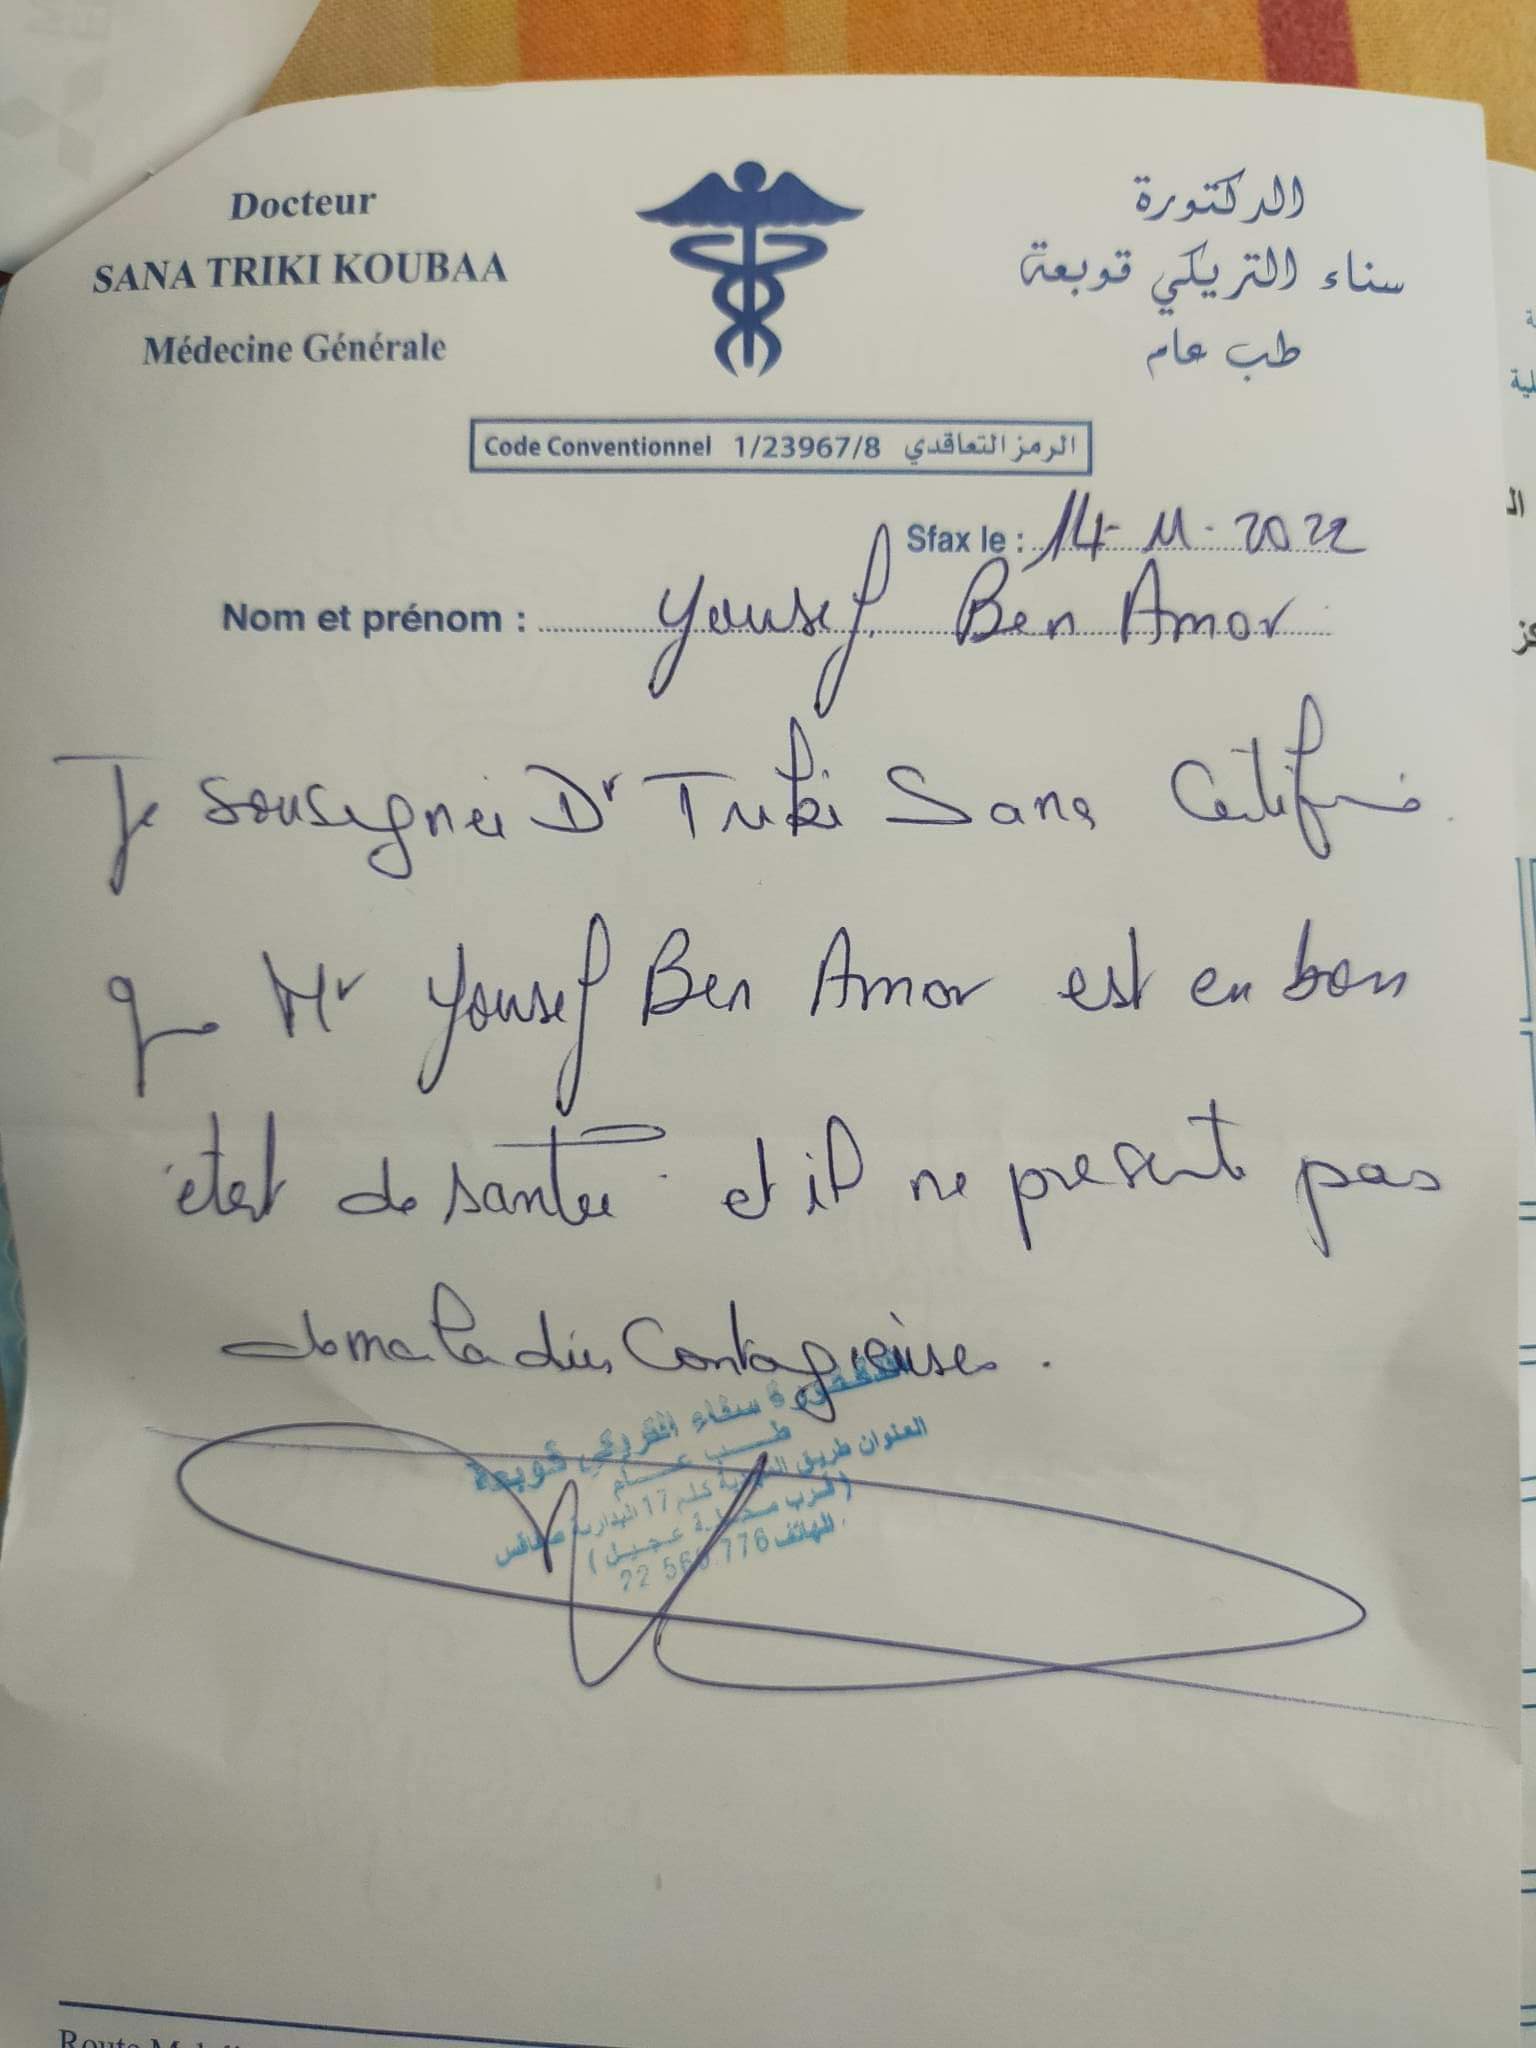 Docteur
SANA TRIKI KOUBAA
Médecine Générale
الدكتورة
سناء التريكي قوبعة
طب عام
Code Conventionnel 1/23967/8 الرمز التعاقدي
Sfax le : 14-11-2022
Nom et prénom : Yousef Ben Amor
Je sousegnée Dr Triki Sana Certifie
que Mr Yousef Ben Amor est en bon
état de santé et il ne present pas
de maladies Contagieuses.
الدكتورة سناء التريكي قوبعة
طب عام
العنوان طريق المهدية كلم 17 البدارنة صفاقس
(قرب محطة عجيل)
الهاتف 22 566 776
Route